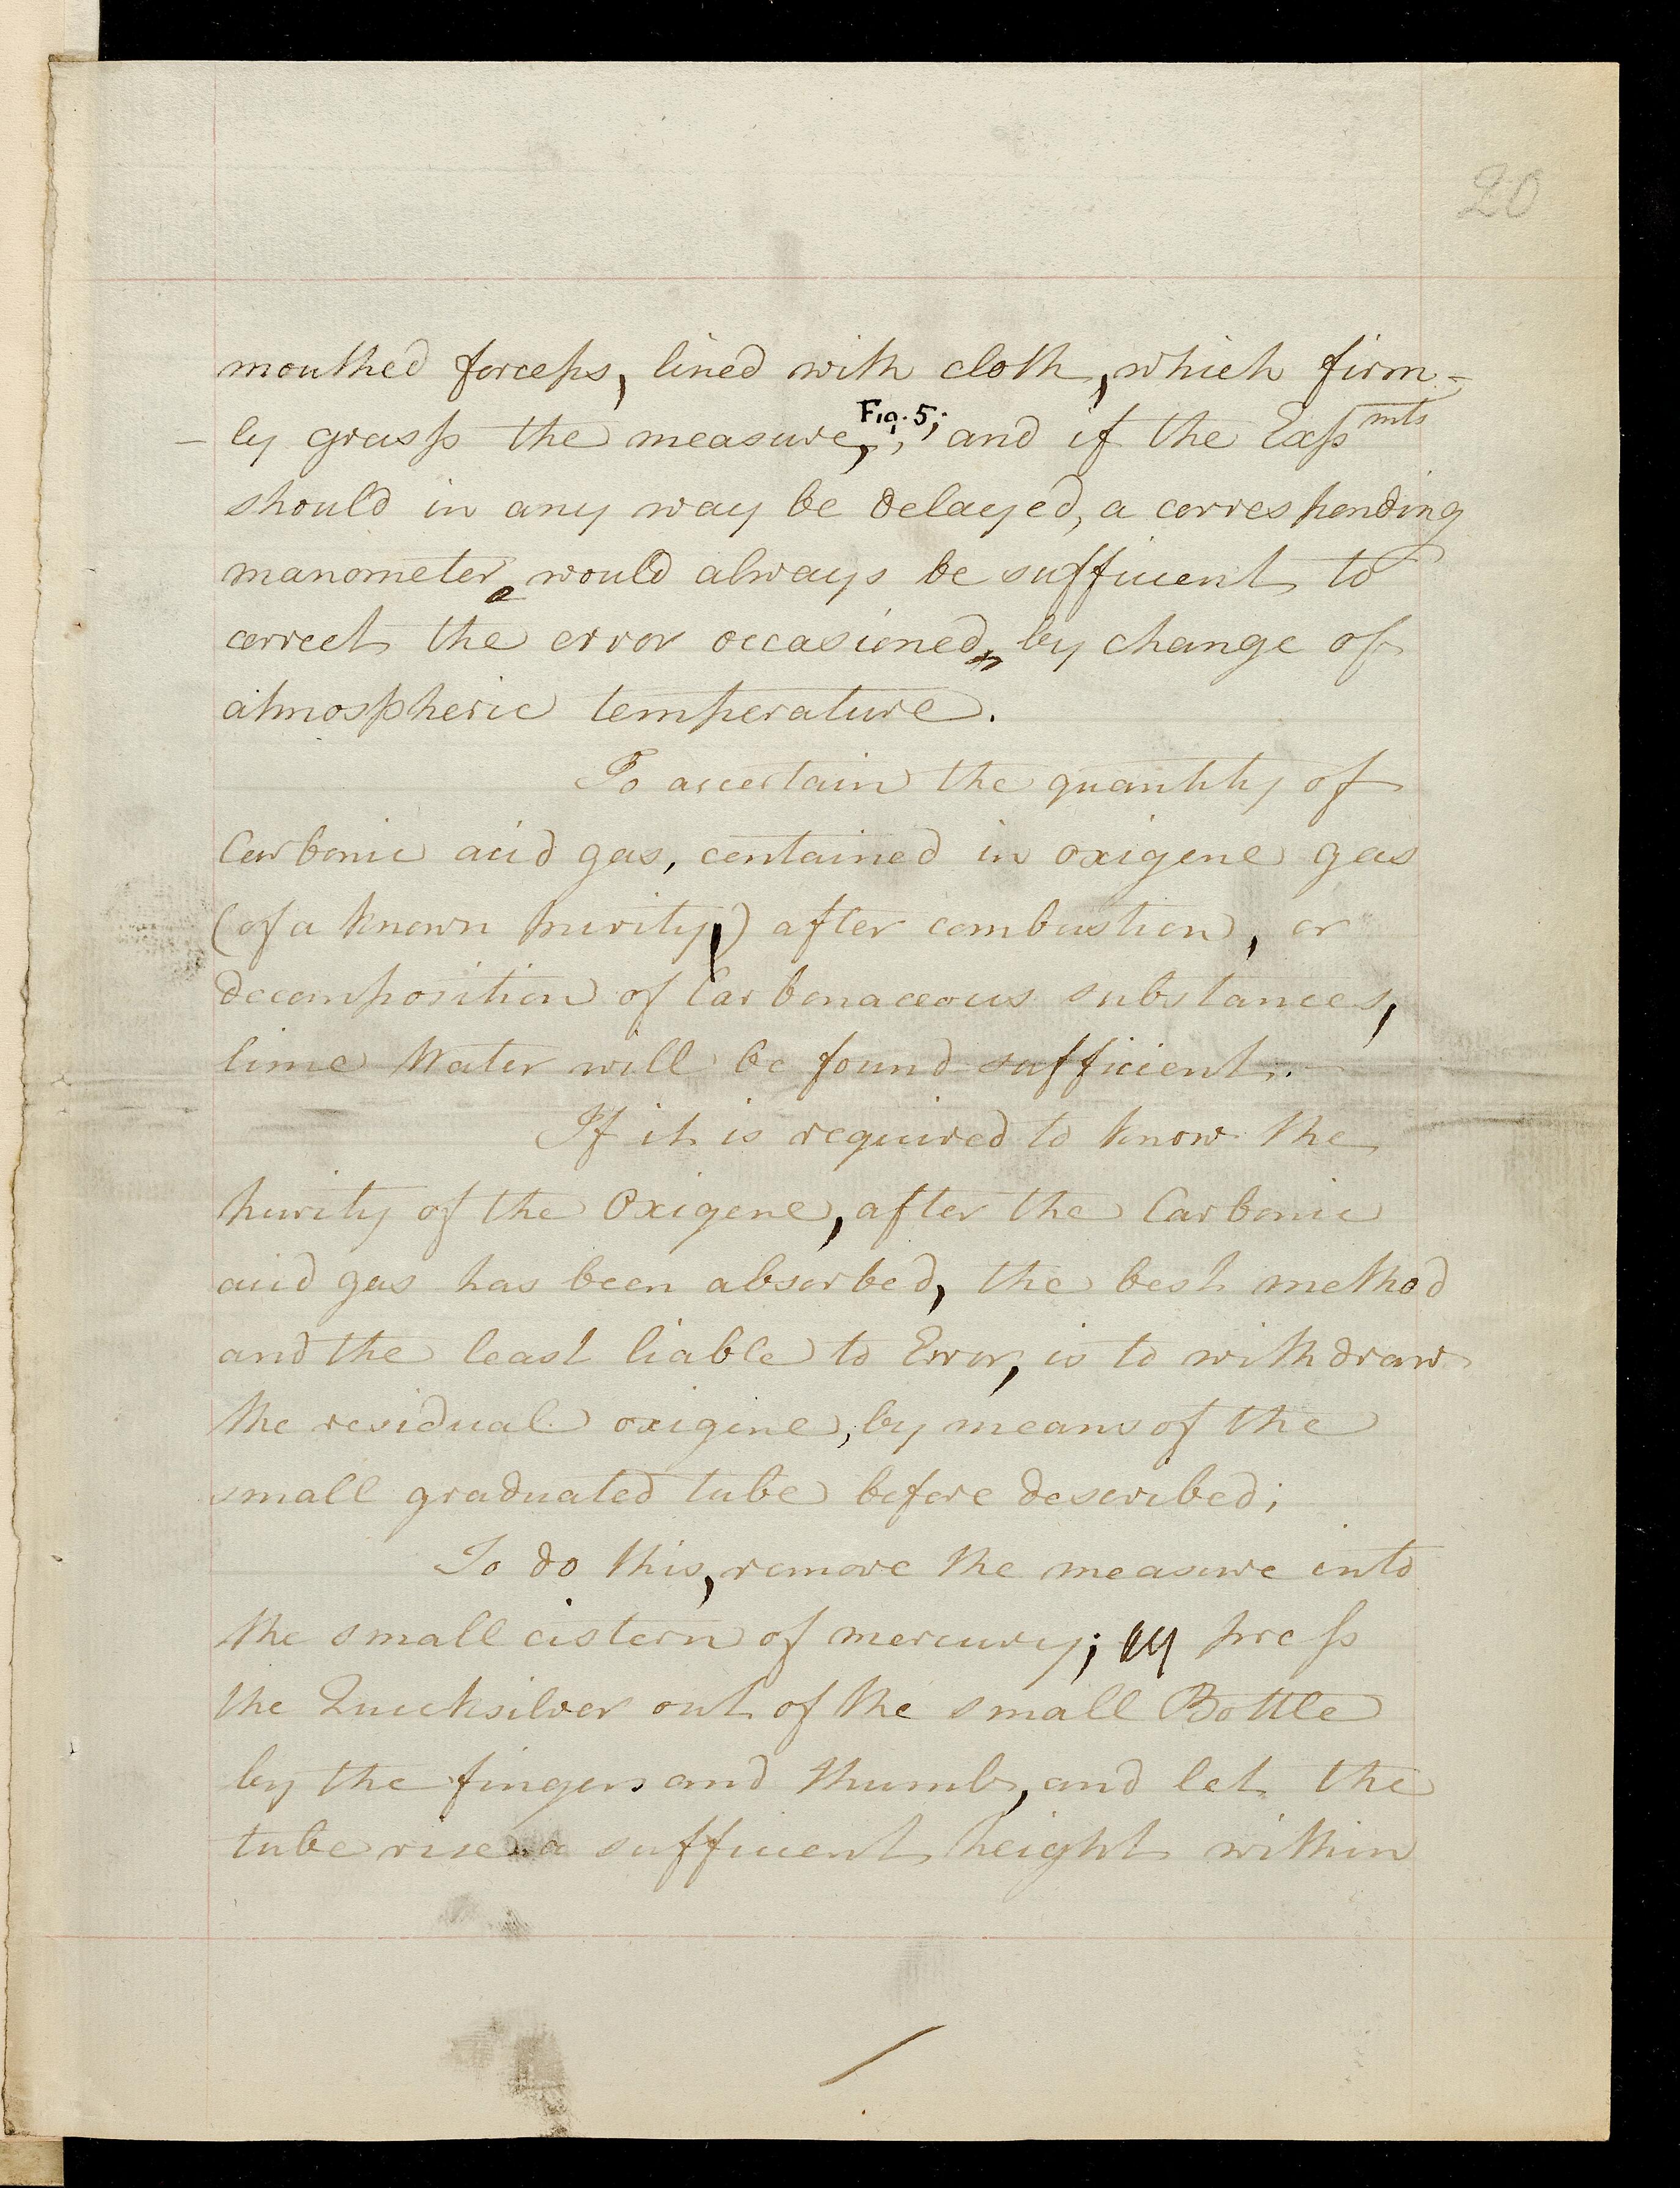 20
mouthed forceps, lined with cloth, which firm-
-ly grasp the measure, Fig. 5; and if the Exp mts
should in any way be delayed, a corresponding
manometer would always be sufficient to
correct the error occasioned, by change of
atmospheric temperature.
To ascertain the quantity of
Carbonic acid gas, contained in oxigene gas
(of a known purity) after combustion, or
decomposition of Carbonaceous substances,
lime Water will be found sufficient.
If it is required to know the
purity of the Oxigene, after the Carbonic
acid gas has been absorbed, the best method
and the least liable to Error, is to withdraw
the residual oxigine, by means of the
small graduated tube before described;
To do this, remove the measure into
the small cistern of mercury; press
the Quicksilver out of the small Bottle
by the fingers and thumb, and let the
tube rise a sufficient height within